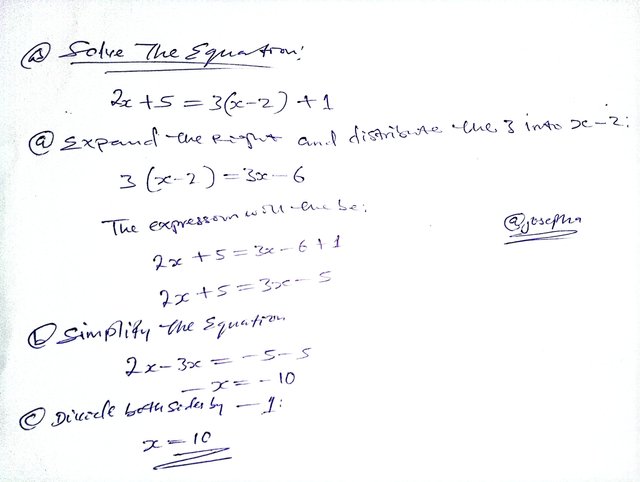 ⓐ Solve The Equation:
2x + 5 = 3(x-2) + 1
ⓐ Expand the Right and distribute the 3 into x - 2:
3 (x-2) = 3x - 6
The expression will be:
2x + 5 = 3x - 6 + 1
2x + 5 = 3x - 5
@josepha
ⓑ Simplify the Equation
2x - 3x = -5 - 5
-x = -10
ⓒ Divide both sides by -1:
x = 10